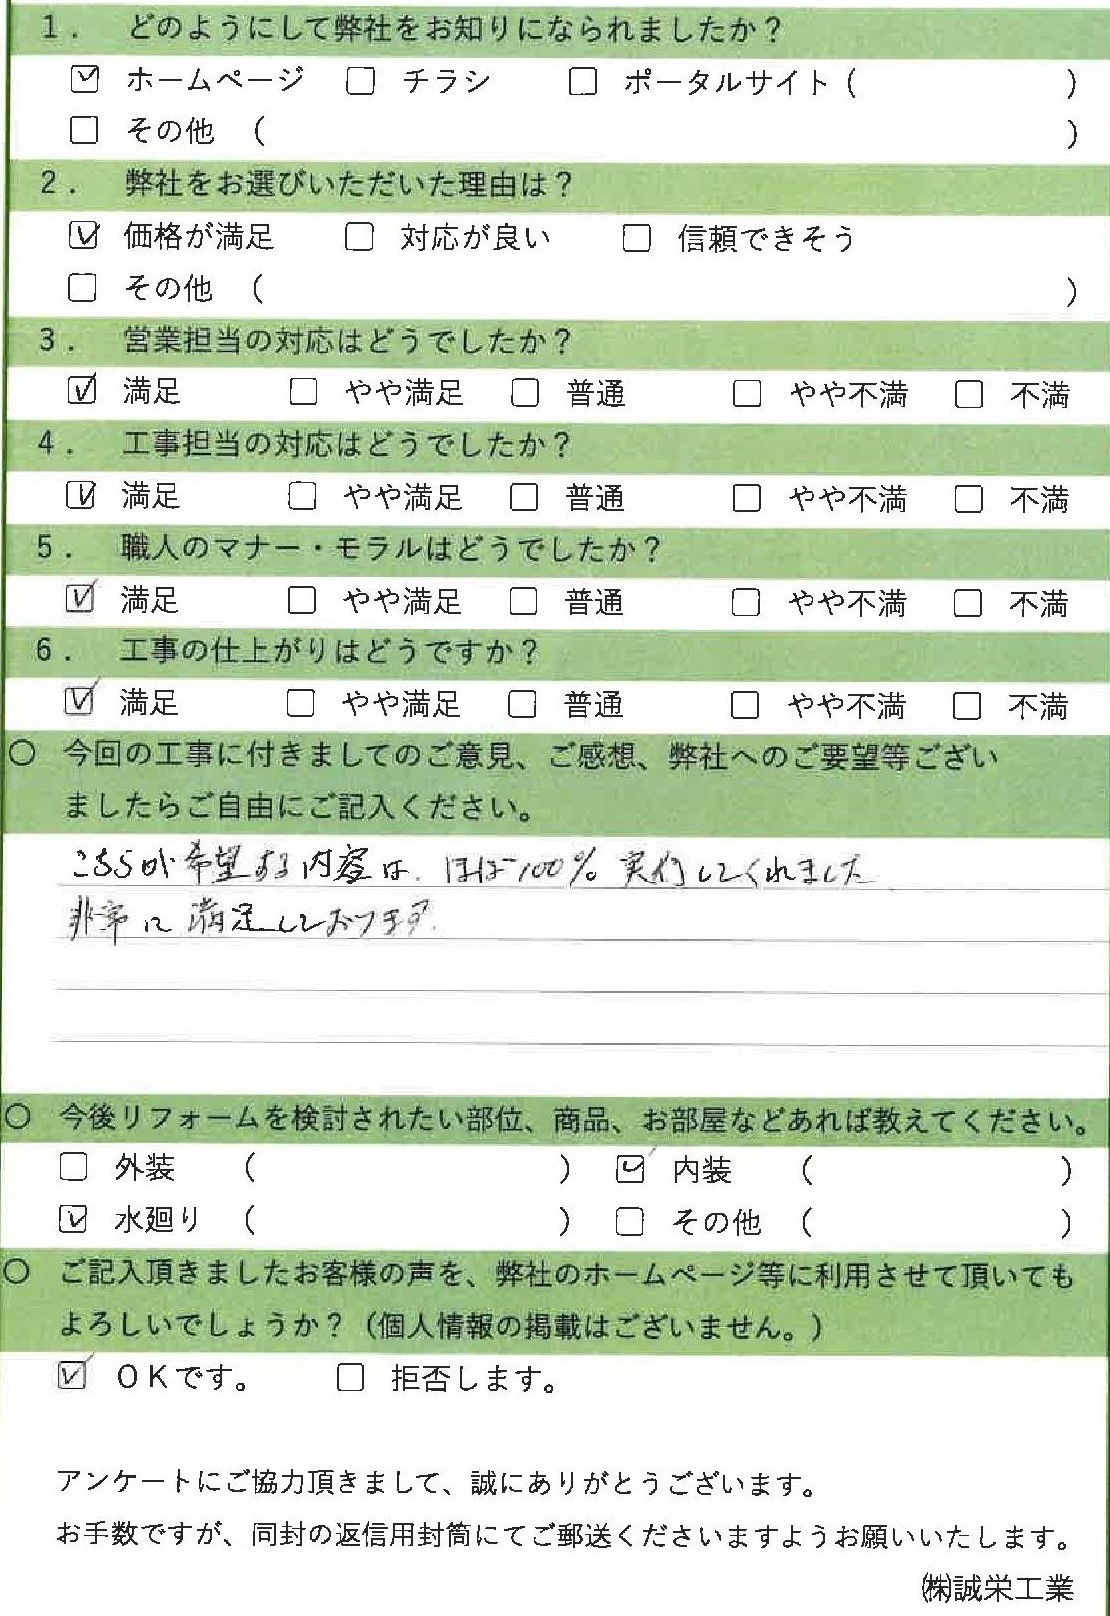 1. どのようにして弊社をお知りになられましたか？
☑ ホームページ □ チラシ □ ポータルサイト（ ）
□ その他 （ ）
2. 弊社をお選びいただいた理由は？
☑ 価格が満足 □ 対応が良い □ 信頼できそう
□ その他 （ ）
3. 営業担当の対応はどうでしたか？
☑ 満足 □ やや満足 □ 普通 □ やや不満 □ 不満
4. 工事担当の対応はどうでしたか？
☑ 満足 □ やや満足 □ 普通 □ やや不満 □ 不満
5. 職人のマナー・モラルはどうでしたか？
☑ 満足 □ やや満足 □ 普通 □ やや不満 □ 不満
6. 工事の仕上がりはどうですか？
☑ 満足 □ やや満足 □ 普通 □ やや不満 □ 不満
○ 今回の工事に付きましてのご意見、ご感想、弊社へのご要望等ござい
ましたらご自由にご記入ください。
こちらが希望する内容は、ほぼ100％実行してくれました
非常に満足しております。
○ 今後リフォームを検討されたい部位、商品、お部屋などあれば教えてください。
□ 外装 （ ） ☑ 内装 （ ）
☑ 水廻り （ ） □ その他 （ ）
○ ご記入頂きましたお客様の声を、弊社のホームページ等に利用させて頂いても
よろしいでしょうか？（個人情報の掲載はございません。）
☑ ＯＫです。 □ 拒否します。
アンケートにご協力頂きまして、誠にありがとうございます。
お手数ですが、同封の返信用封筒にてご郵送くださいますようお願いいたします。
㈱誠栄工業